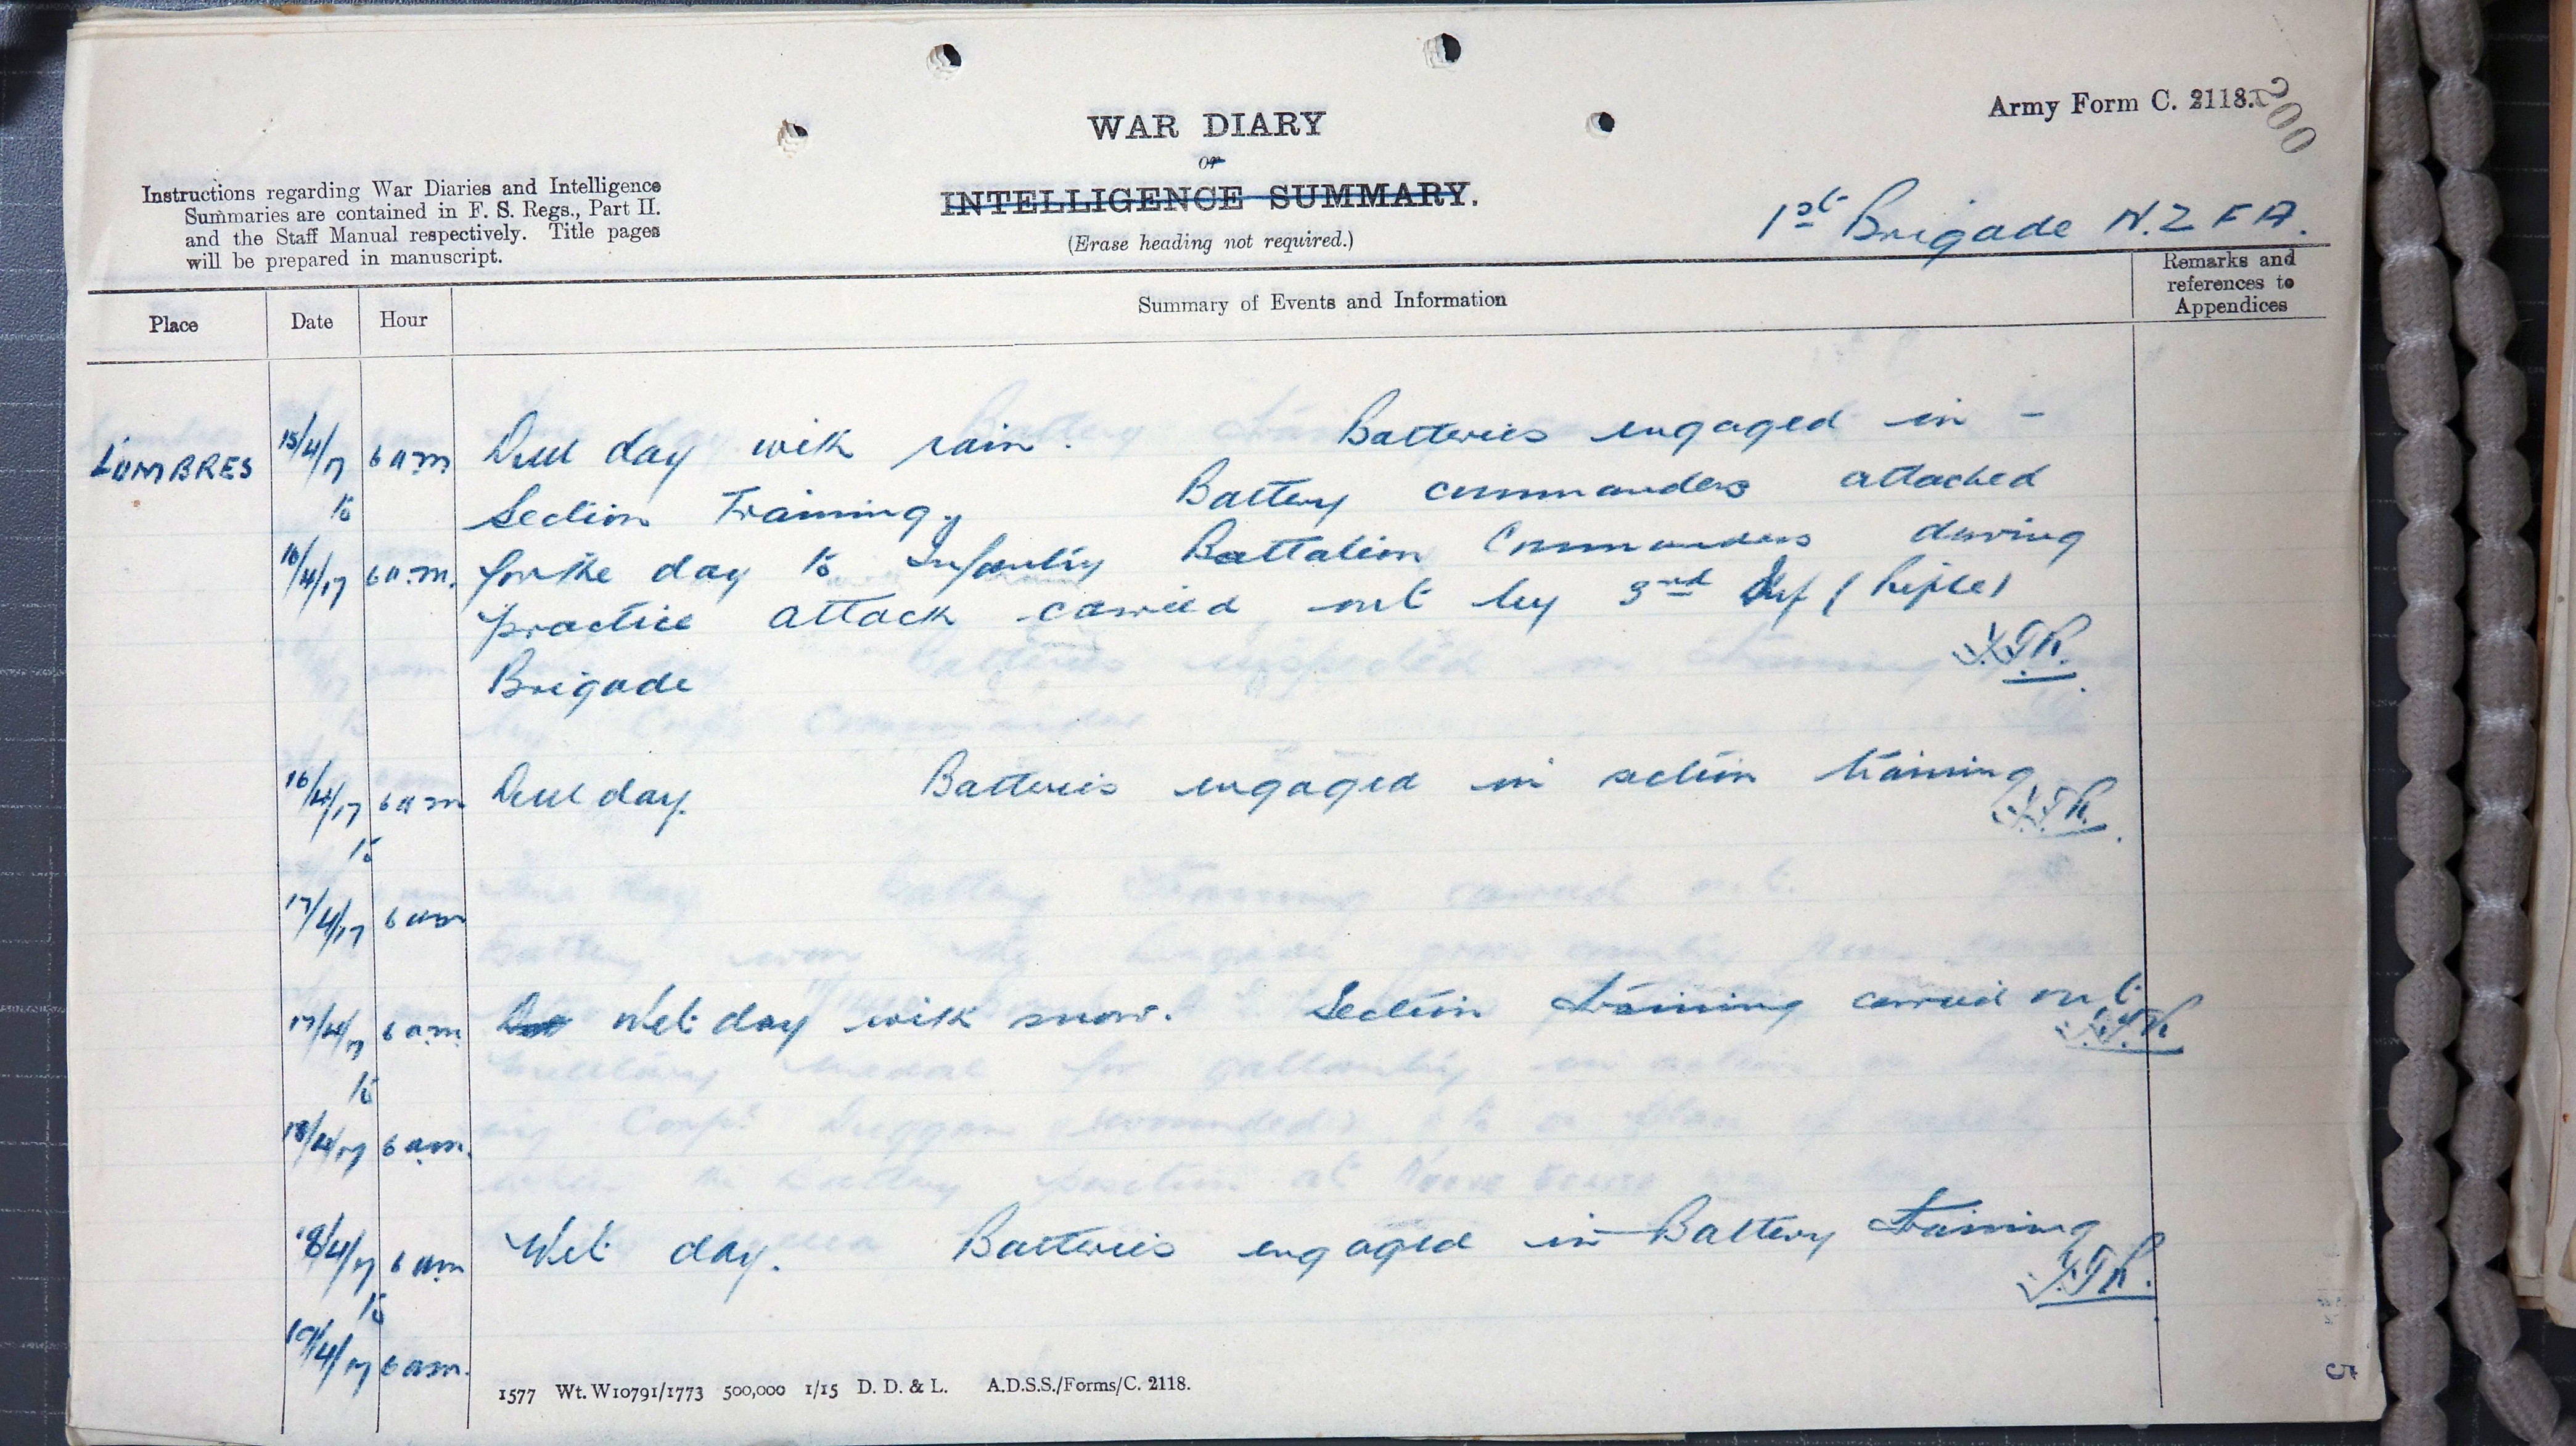 Army Form C. 2118.
200
WAR DIARY
or
INTELLIGENCE SUMMARY.
(Erase heading not required.)
Instructions regarding War Diaries and Intelligence
Summaries are contained in F. S. Regs., Part II.
and the Staff Manual respectively. Title pages
will be prepared in manuscript.
1st Brigade N.Z F A.
Place Date Hour Summary of Events and Information Remarks and
references to
Appendices
LUMBRES 15/4/17 6 am Dull day with rain. Batteries engaged in -
to Section Training. Battery commanders attached
16/4/17 6 a.m. for the day to Infantry Battalion Commanders during
practice attack carried out by 3rd Inf (Rifle)
Brigade
16/4/17 6 am Dull day. Batteries engaged in section training
to
17/4/17 6 am
17/4/17 6 a.m. Wet day with snow. Section training carried out
to
18/4/17 6 am.
18/4/17 6 am Wet day. Batteries engaged in Battery training
to
19/4/17 6 am.
1577 Wt. W10791/1773 500,000 1/15 D. D. & L. A.D.S.S./Forms/C. 2118.